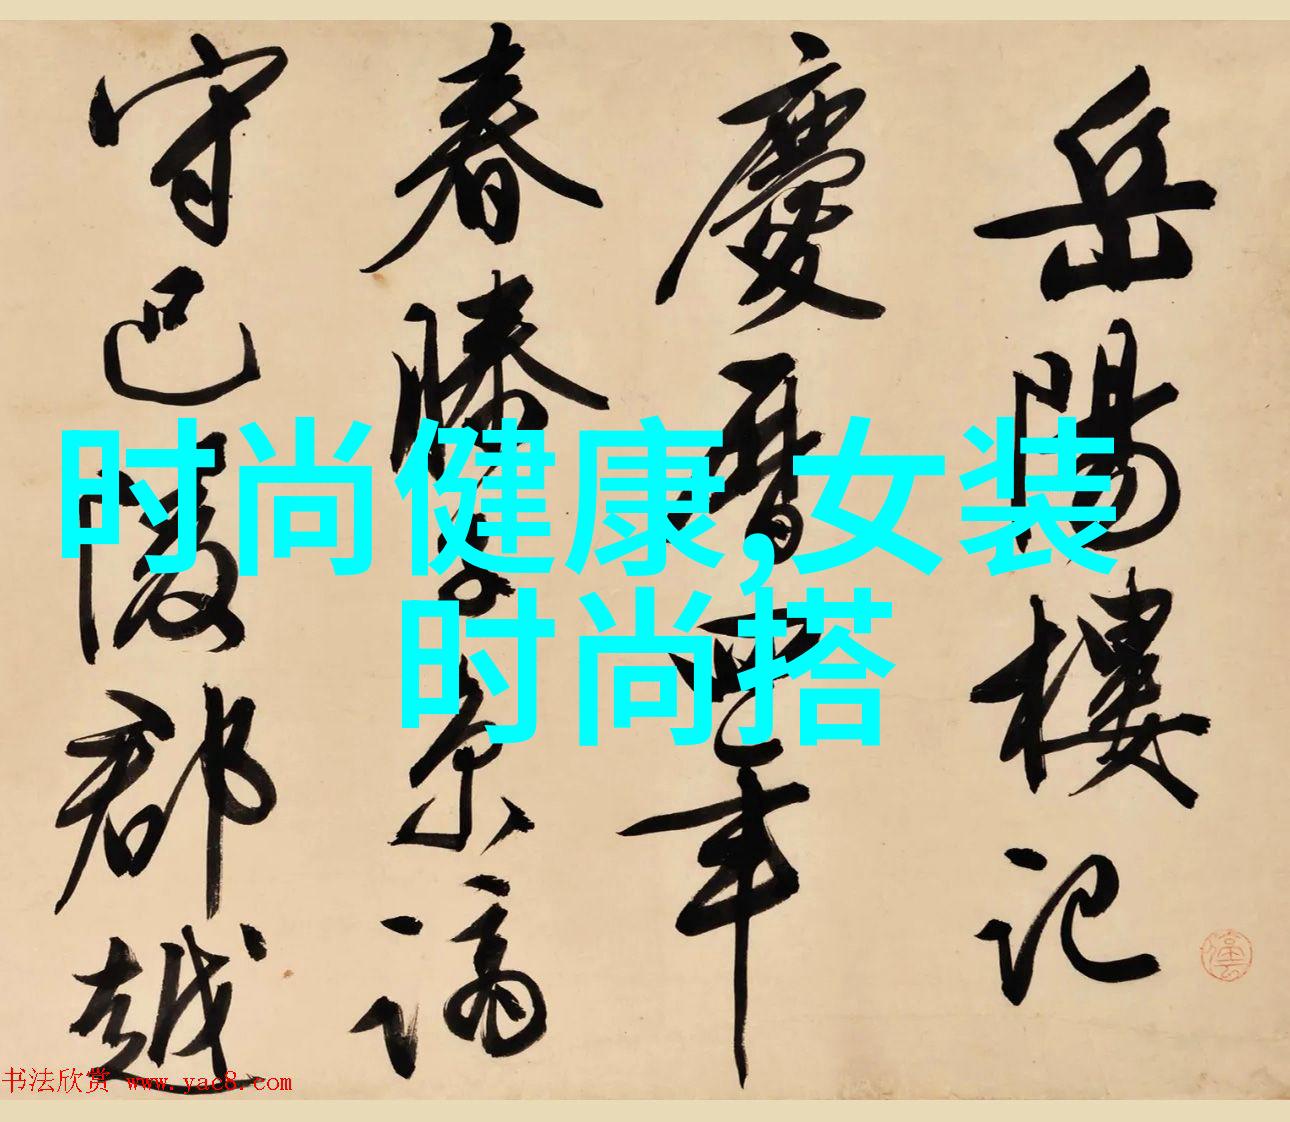 岳陽樓記
慶曆四年
春滕子京謫
守巴陵郡越
时尚健康,女装
时尚搭
书法欣赏 www.yac8.com